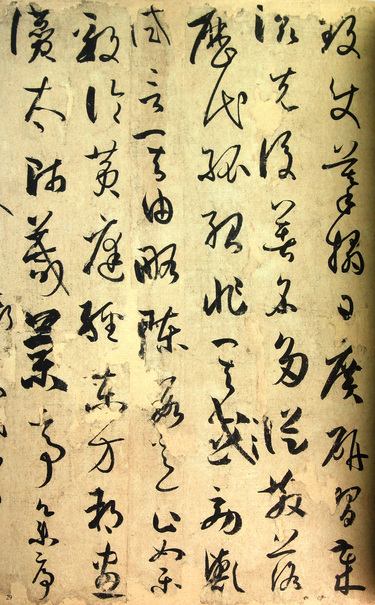 致使摹搨日廣研習歲
滋先後著名多從散落
歷代孤紹非其効歟
試言其由略陳數意止如樂
毅論黃庭經東方朔畫
讚太師箴蘭亭集序
29